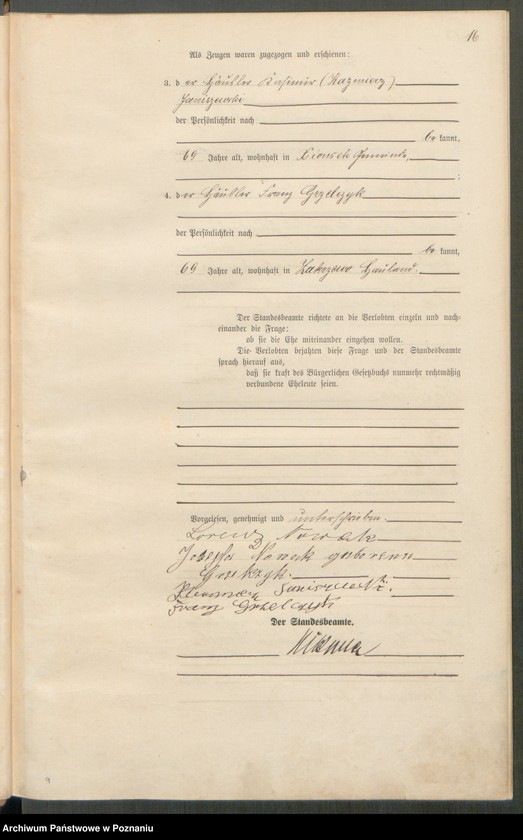 16
Als Zeugen waren zugezogen und erschienen:
3. der Häusler Kasimir (Kazmierz)
Janiszewski
der Persönlichkeit nach
be kannt,
69 Jahre alt, wohnhaft in Xionsek Gemeinde,
;
4. der Häusler Franz Grzelczyk
der Persönlichkeit nach
be kannt,
69 Jahre alt, wohnhaft in Zakrzewo Hauland.
Der Standesbeamte richtete an die Verlobten einzeln und nach-
einander die Frage:
ob sie die Ehe miteinander eingehen wollen.
Die Verlobten bejahten diese Frage und der Standesbeamte
sprach hierauf aus,
daß sie kraft des Bürgerlichen Gesetzbuchs nunmehr rechtmäßig
verbundene Eheleute seien.
Vorgelesen, genehmigt und unterschrieben.
Lorenz Nowak
Josepha Nowak geborene
Grzelczyk.
Janiszewski.
Franz Grzelczyk
Der Standesbeamte.
9
Archiwum Państwowe w Poznaniu